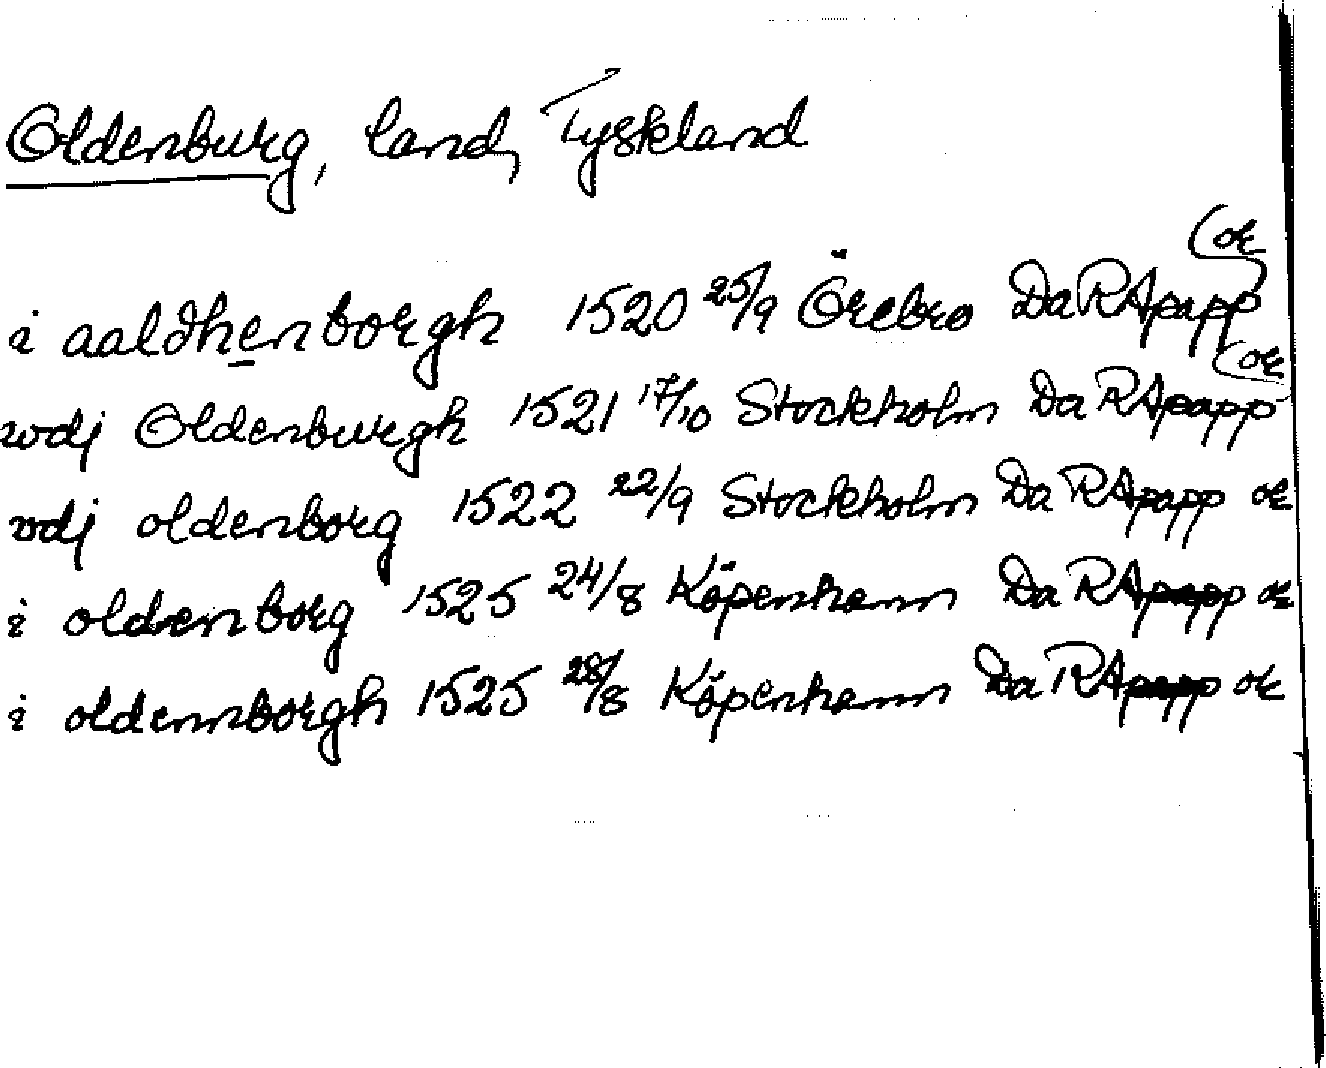 Oldenburg, land, Tyskland
i aaldhenborgh 1520 25/9 Örebro Da RApapp ok
vdj Oldenburgh 1521 17/10 Stockholm Da RApapp ok
vdj oldenborg 1522 22/9 Stockholm Da RApapp ok
i oldenborg 1525 24/8 Köpenhamn Da RApapp ok
i oldennborgh 1525 28/8 Köpenhamn Da RApapp ok